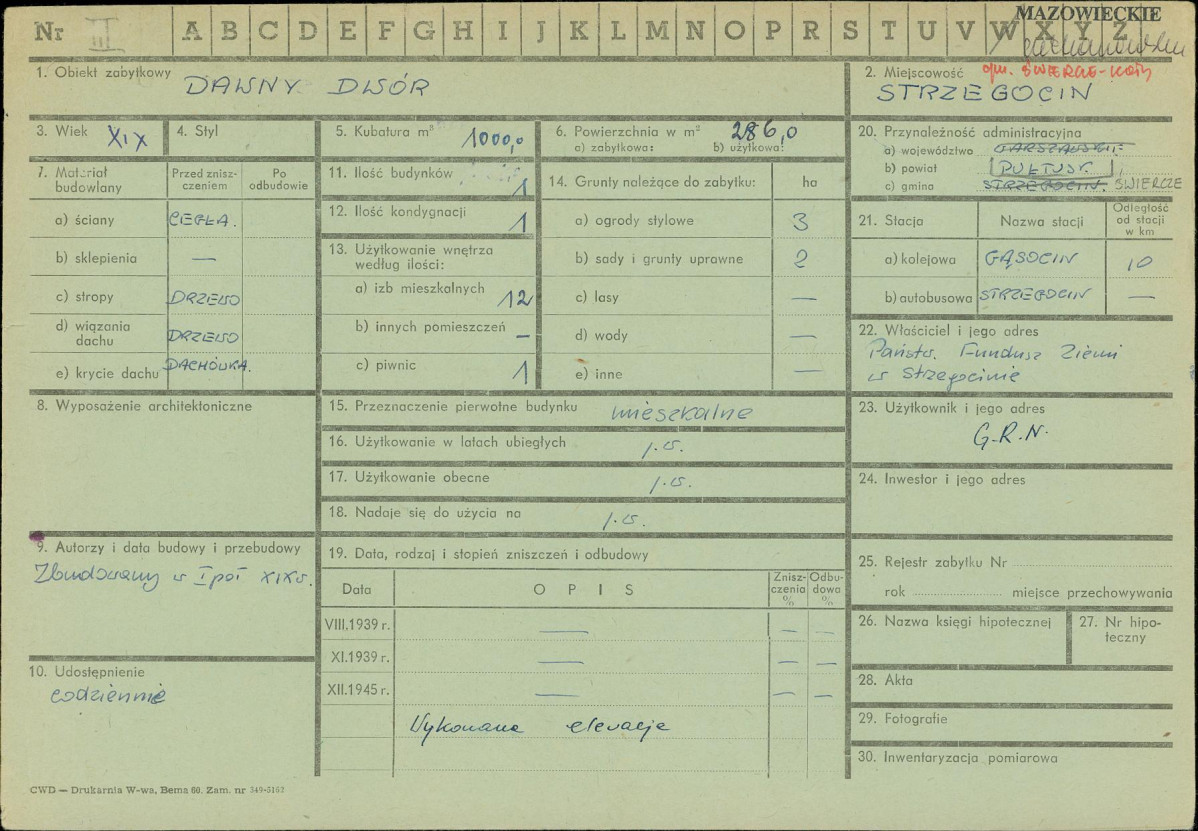 Nr III A B C D E F G H I J K L M N O P R S T U V W X Y Z
MAZOWIECKIE
1. Obiekt zabytkowy DAWNY DWÓR
2. Miejscowość gm. ŚWIERCZE-KOTY
STRZEGOCIN
3. Wiek XIX
4. Styl
5. Kubatura m³ 1000,0
6. Powierzchnia w m² 286,0
a) zabytkowa: b) użytkowa:
7. Materiał budowlany
Przed zniszczeniem
Po odbudowie
a) ściany CEGŁA.
b) sklepienia —
c) stropy DRZEWO
d) wiązania dachu DRZEWO
e) krycie dachu DACHÓWKA.
8. Wyposażenie architektoniczne
9. Autorzy i data budowy i przebudowy
Zbudowany w I poł XIX w.
10. Udostępnienie
codziennie
11. Ilość budynków 1
12. Ilość kondygnacji 1
13. Użytkowanie wnętrza
według ilości:
a) izb mieszkalnych 12
b) innych pomieszczeń —
c) piwnic 1
14. Grunty należące do zabytku: ha
a) ogrody stylowe 3
b) sady i grunty uprawne 2
c) lasy —
d) wody —
e) inne —
15. Przeznaczenie pierwotne budynku mieszkalne
16. Użytkowanie w latach ubiegłych j.w.
17. Użytkowanie obecne j.w.
18. Nadaje się do użycia na j.w.
19. Data, rodzaj i stopień zniszczeń i odbudowy
Data OPIS Zniszczenia % Odbudowa %
VIII.1939 r. — — —
XI.1939 r. — — —
XII.1945 r. — — —
Wykonane elewacje
20. Przynależność administracyjna
a) województwo WARSZAWSKIE
b) powiat PUŁTUSK.
c) gmina STRZEGOCIN. ŚWIERCZE
21. Stacja Nazwa stacji Odległość od stacji w km
a) kolejowa GĄSOCIN 10
b) autobusowa STRZEGOCIN —
22. Właściciel i jego adres
Państw. Fundusz Ziemi
w Strzegocinie
23. Użytkownik i jego adres
G.R.N.
24. Inwestor i jego adres
25. Rejestr zabytku Nr
rok miejsce przechowywania
26. Nazwa księgi hipotecznej
27. Nr hipoteczny
28. Akta
29. Fotografie
30. Inwentaryzacja pomiarowa
CWD — Drukarnia W-wa, Bema 60. Zam. nr 349-3162